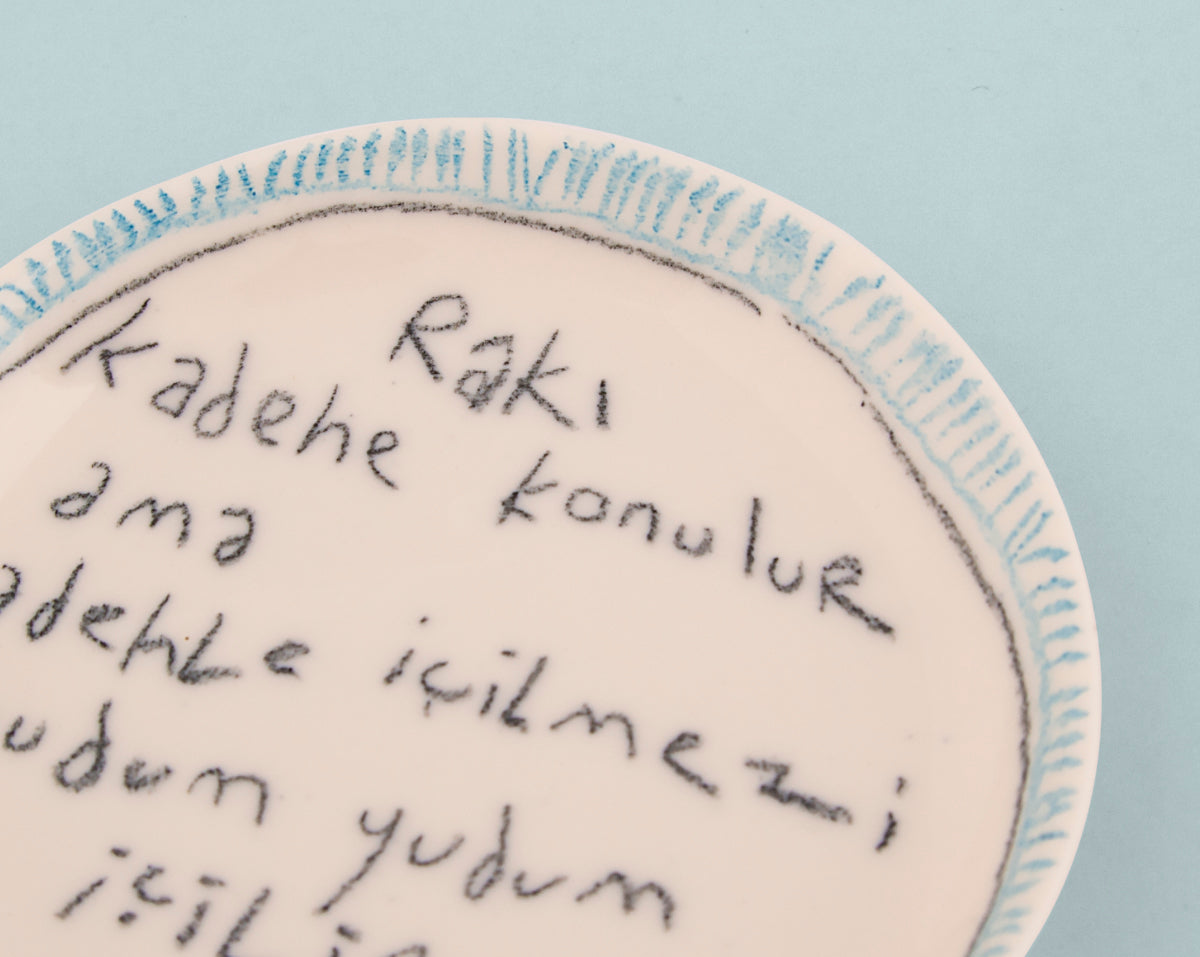 Rakı
kadehe konulur
ama
adehle içilmez i
udum yudum
içili